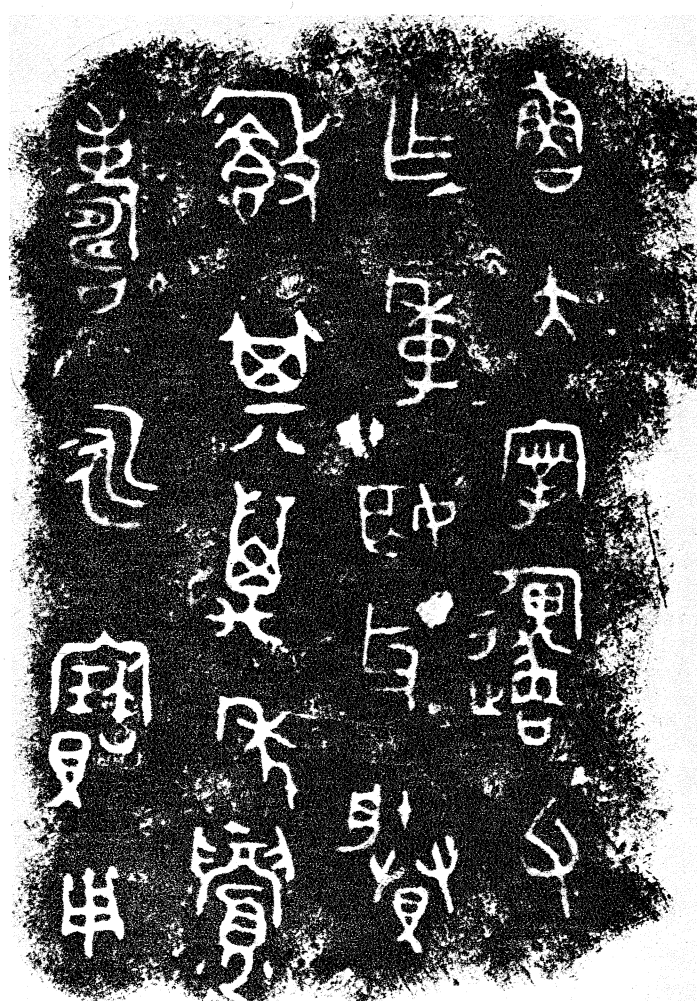 魯大宰邍父
乍季姬牙媵
簋其萬年眉
壽永寶用